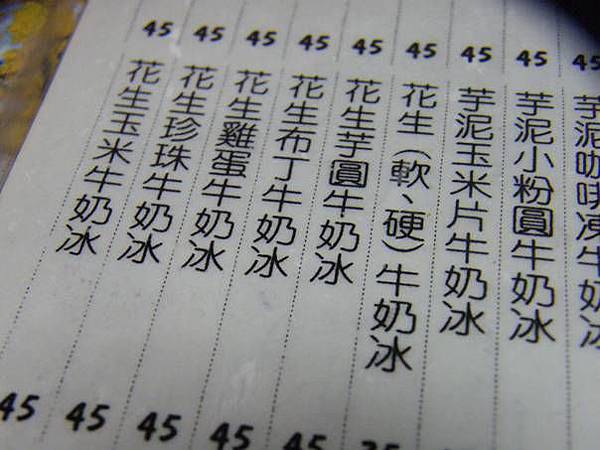 45
芋泥咖啡凍牛奶冰
45
芋泥小粉圓牛奶冰
45
芋泥玉米片牛奶冰
45
花生（軟、硬）牛奶冰
45
花生芋圓牛奶冰
45
花生布丁牛奶冰
45
花生雞蛋牛奶冰
45
花生珍珠牛奶冰
45
花生玉米牛奶冰
45
45
45
45
45